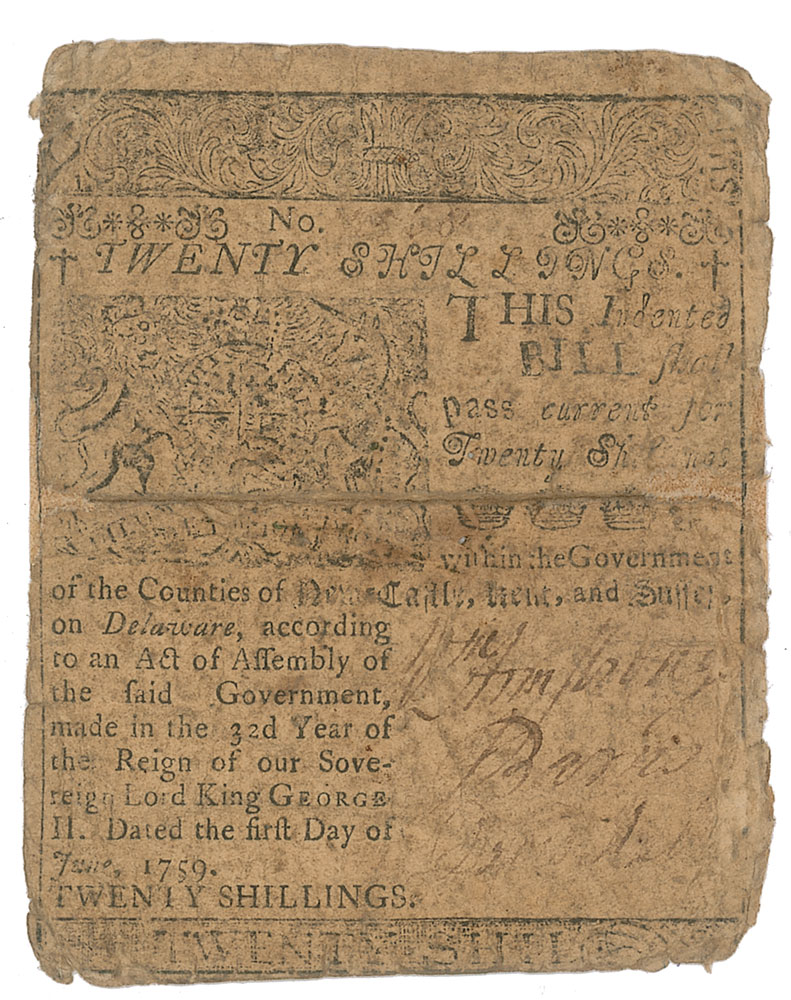 No.
TWENTY SHILLINGS.
THIS Indented
BILL shall
pass current for
Twenty Shillings
within the Government
of the Counties of New-Castle, Kent, and Sussex,
on Delaware, according
to an Act of Assembly of
the said Government,
made in the 32d Year of
the Reign of our Sove-
reign Lord King GEORGE
II. Dated the first Day of
June, 1759.
TWENTY SHILLINGS.
TWENTY-SHIL